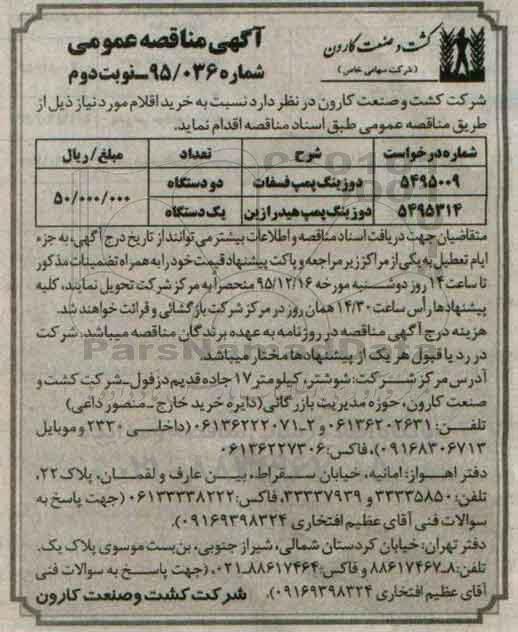 آگهی مناقصه عمومی
شماره ۹۵/۰۳۶-نوبت دوم
کشت و صنعت کارون
(شرکت سهامی خاص)
شرکت کشت و صنعت کارون در نظر دارد نسبت به خرید اقلام مورد نیاز ذیل از
طریق مناقصه عمومی طبق اسناد مناقصه اقدام نماید.
شماره درخواست شرح تعداد مبلغ/ ریال
۵۴۹۵۰۰۹ دوزینگ پمپ فسفات دو دستگاه ۵۰/۰۰۰/۰۰۰
۵۴۹۵۳۱۴ دوزینگ پمپ هیدرازین یک دستگاه
متقاضیان جهت دریافت اسناد مناقصه و اطلاعات بیشتر می توانند از تاریخ درج آگهی، به جزء
ایام تعطیل به یکی از مراکز زیر مراجعه و پاکت پیشنهاد قیمت خود را به همراه تضمینات مذکور
تا ساعت ۱۴ روز دوشنبه مورخه ۹۵/۱۲/۱۶ منحصراً به مرکز شرکت تحویل نمایند، کلیه
پیشنهادها رأس ساعت ۱۴/۳۰ همان روز در مرکز شرکت بازگشائی و قرائت خواهند شد.
هزینه درج آگهی مناقصه در روزنامه به عهده برندگان مناقصه میباشد. شرکت
در رد یا قبول هر یک از پیشنهادها مختار میباشد.
آدرس مرکز شرکت: شوشتر، کیلومتر ۱۷ جاده قدیم دزفول-شرکت کشت و
صنعت کارون، حوزه مدیریت بازرگانی(دایره خرید خارج-منصور داغی)
تلفن: ۰۶۱۳۶۲۰۲۶۳۱ و ۲-۰۶۱۳۶۲۲۲۰۷۱ (داخلی ۲۲۳۰ و موبایل
۰۹۱۶۸۳۰۶۷۱۳)، فاکس: ۰۶۱۳۶۲۲۷۳۰۶
دفتر اهواز: امانیه، خیابان سقراط، بین عارف و لقمان، پلاک ۲۲،
تلفن: ۳۳۳۳۵۸۵۰ و ۳۳۳۳۷۹۳۹، فاکس: ۰۶۱۳۳۳۳۸۲۲۲ (جهت پاسخ به
سوالات فنی آقای عظیم افتخاری ۰۹۱۶۹۳۹۸۳۲۴).
دفتر تهران: خیابان کردستان شمالی، شیراز جنوبی، بن بست موسوی پلاک یک.
تلفن: ۸-۸۸۶۱۷۴۶۷ و فاکس: ۸۸۶۱۷۴۶۴-۰۲۱. (جهت پاسخ به سوالات فنی
آقای عظیم افتخاری ۰۹۱۶۹۳۹۸۳۲۴). شرکت کشت و صنعت کارون